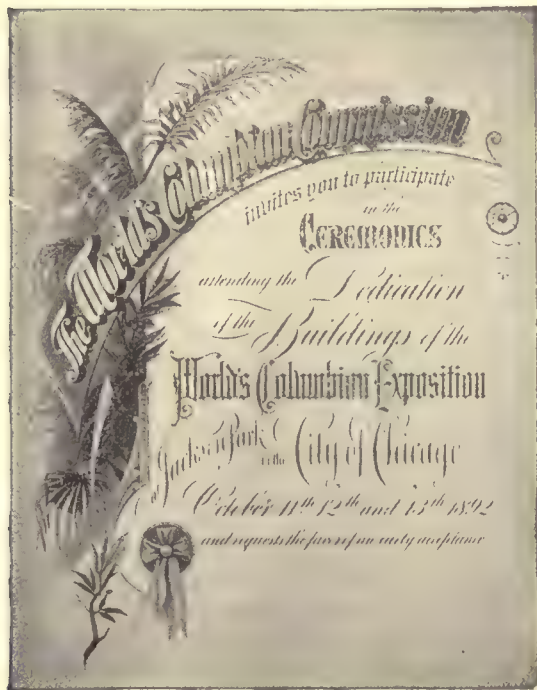 The World's Columbian Commission
invites you to participate
in the
CEREMONIES
attending the Dedication
of the Buildings of the
World's Columbian Exposition
Jackson Park in the City of Chicago
October 11th 12th and 13th 1892
and requests the favor of an early acceptance